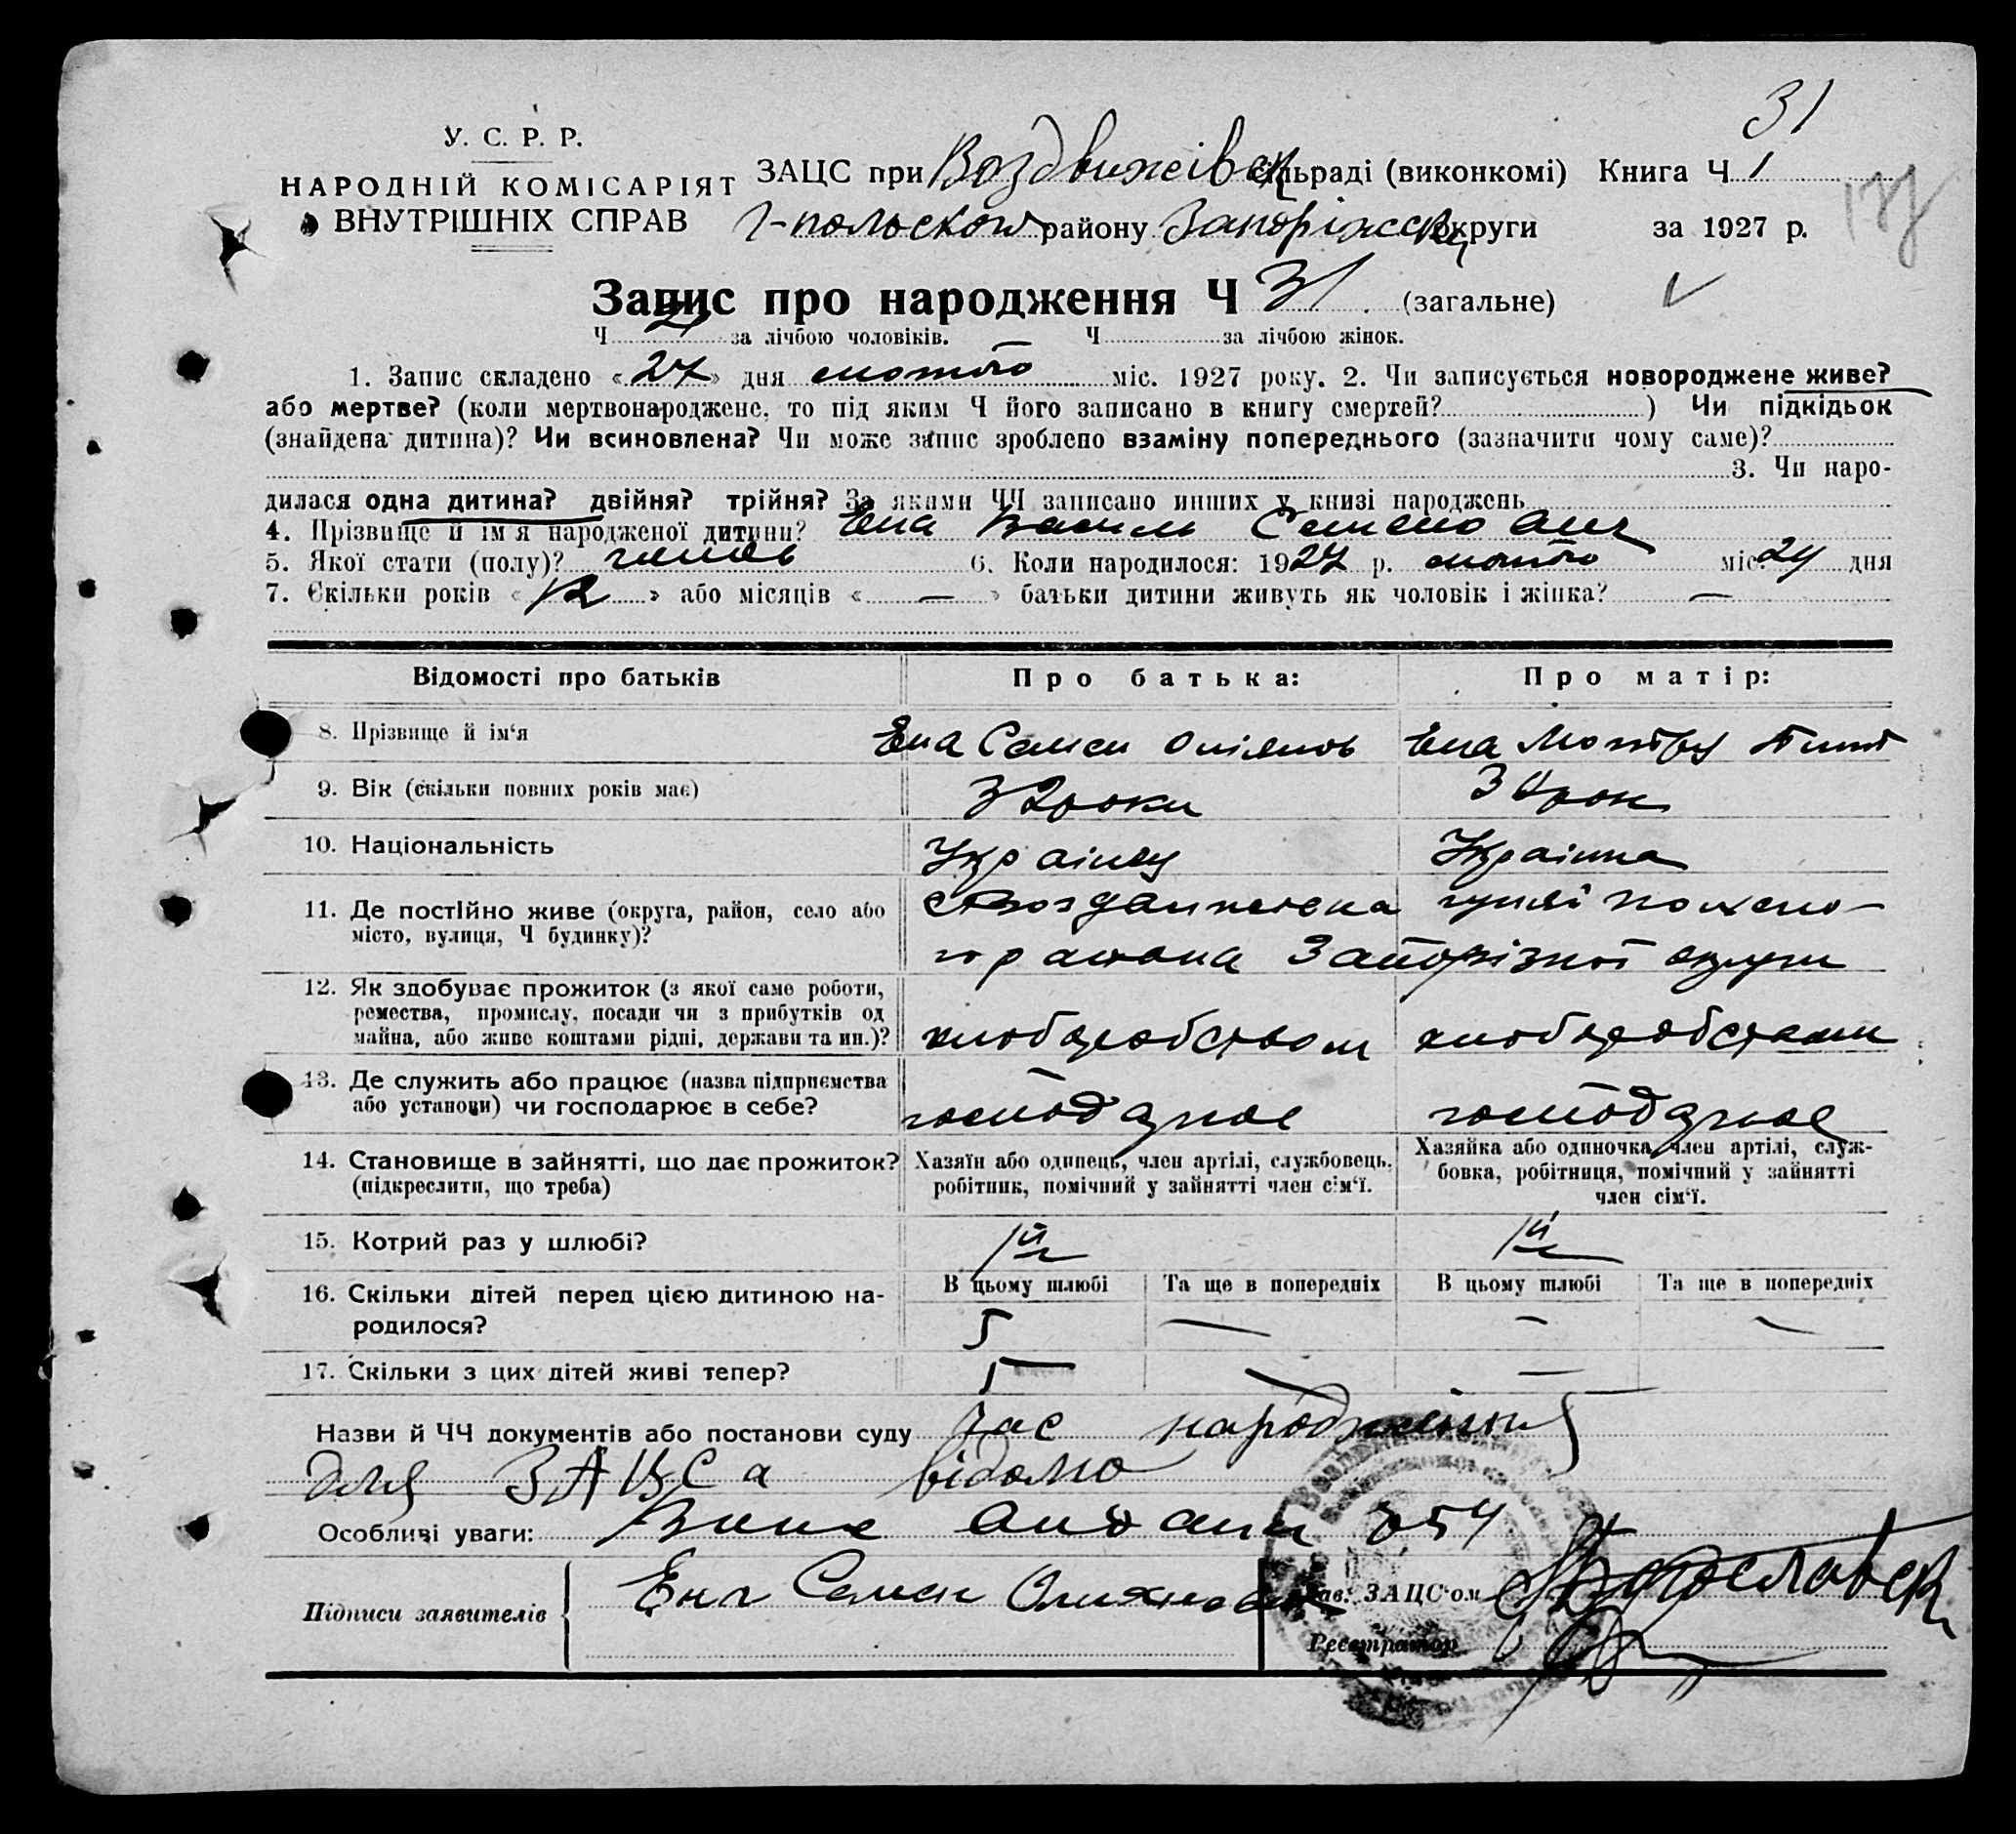 31
У. С. Р. Р.
НАРОДНІЙ КОМІСАРІЯТ
ВНУТРІШНІХ СПРАВ
ЗАЦС при Воздвижівск сільраді (виконкомі) Книга Ч 1
Г-польского району Запоріжськ округи за 1927 р.
177
Запис про народження Ч 31 (загальне)
Ч 21 за лічбою чоловіків. Ч за лічбою жінок.
1. Запис складено « 27 » дня лютого міс. 1927 року. 2. Чи записується новороджене живе?
або мертве? (коли мертвонароджене, то під яким Ч його записано в книгу смертей? ) Чи підкідьок
(знайдена дитина)? Чи всиновлена? Чи може запис зроблено взаміну попереднього (зазначити чому саме)?
3. Чи наро-
дилася одна дитина? двійня? трійня? За якими ЧЧ записано инших у книзі народжень
4. Прізвище й ім'я народженої дитини? Ена Василь Семенович
5. Якої стати (полу)? 6. Коли народилося: 1927 р. лютого міс 24 дня
7. Скільки років « 12 » або місяців « — » батьки дитини живуть як чоловік і жінка? —
Відомості про батьків Про батька: Про матір:
8. Прізвище й ім'я Ена Семен Ена Мотря
9. Вік (скільки повних років має) 32 роки рок
10. Національність Українец Українка
11. Де постійно живе (округа, район, село або
місто, вулиця, Ч будинку)?
района Запорізької округи
12. Як здобуває прожиток (з якої саме роботи,
ремества, промислу, посади чи з прибутків од
майна, або живе коштами рідні, держави та ин.)? хлоборобством хлоборобством
13. Де служить або працює (назва підприємства
або установи) чи господарює в себе? господарює господарює
14. Становище в зайнятті, що дає прожиток?
(підкреслити, що треба)
Хазяїн або одинець, член артілі, службовець,
робітник, помічний у зайнятті член сім'ї.
Хазяйка або одиночка, член артілі, служ-
бовка, робітниця, помічний у зайнятті
член сім'ї.
15. Котрий раз у шлюбі? 1й 1й
16. Скільки дітей перед цією дитиною на-
родилося?
В цьому шлюбі Та ще в попередніх В цьому шлюбі Та ще в попередніх
5 — — —
17. Скільки з цих дітей живі тепер? 5 — —
Назви й ЧЧ документів або постанови суду час народження
для ЗАЦСа відомо
Особливі уваги:
Підписи заявителів Ена Семен
Зав. ЗАЦС'ом
Реєстратор